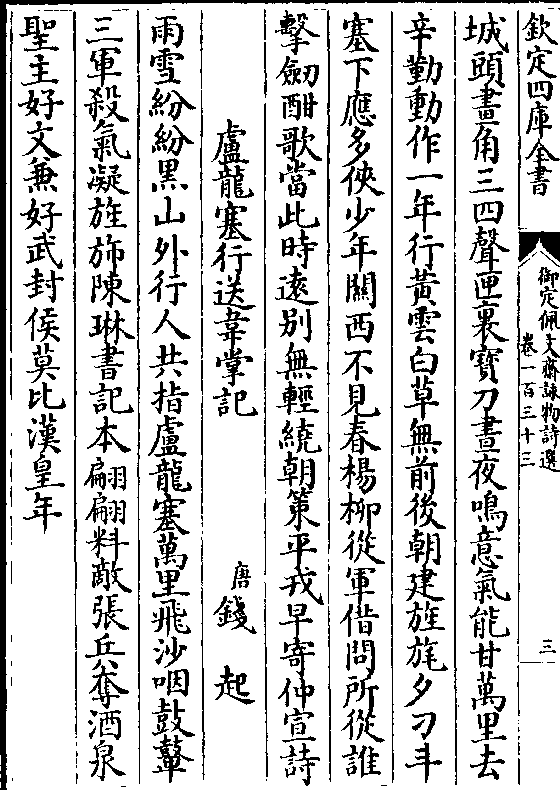 欽定四庫全書
御定佩文齋詠物詩選
卷一百三十三
三
城頭畫角三四聲匣裏寶刀晝夜鳴意氣能甘萬里去
辛勤動作一年行黃雲白草無前後朝建旌旄夕刁斗
塞下應多俠少年關西不見春楊柳從軍借問所從誰
擊劒酣歌當此時遠別無輕繞朝策平戎早寄仲宣詩
盧龍塞行送韋掌記
唐錢起
雨雪紛紛黑山外行人共指盧龍塞萬里飛沙咽鼓鼙
三軍殺氣凝旌斾陳琳書記本翩翩料敵張兵奪酒泉
聖主好文兼好武封侯莫比漢皇年